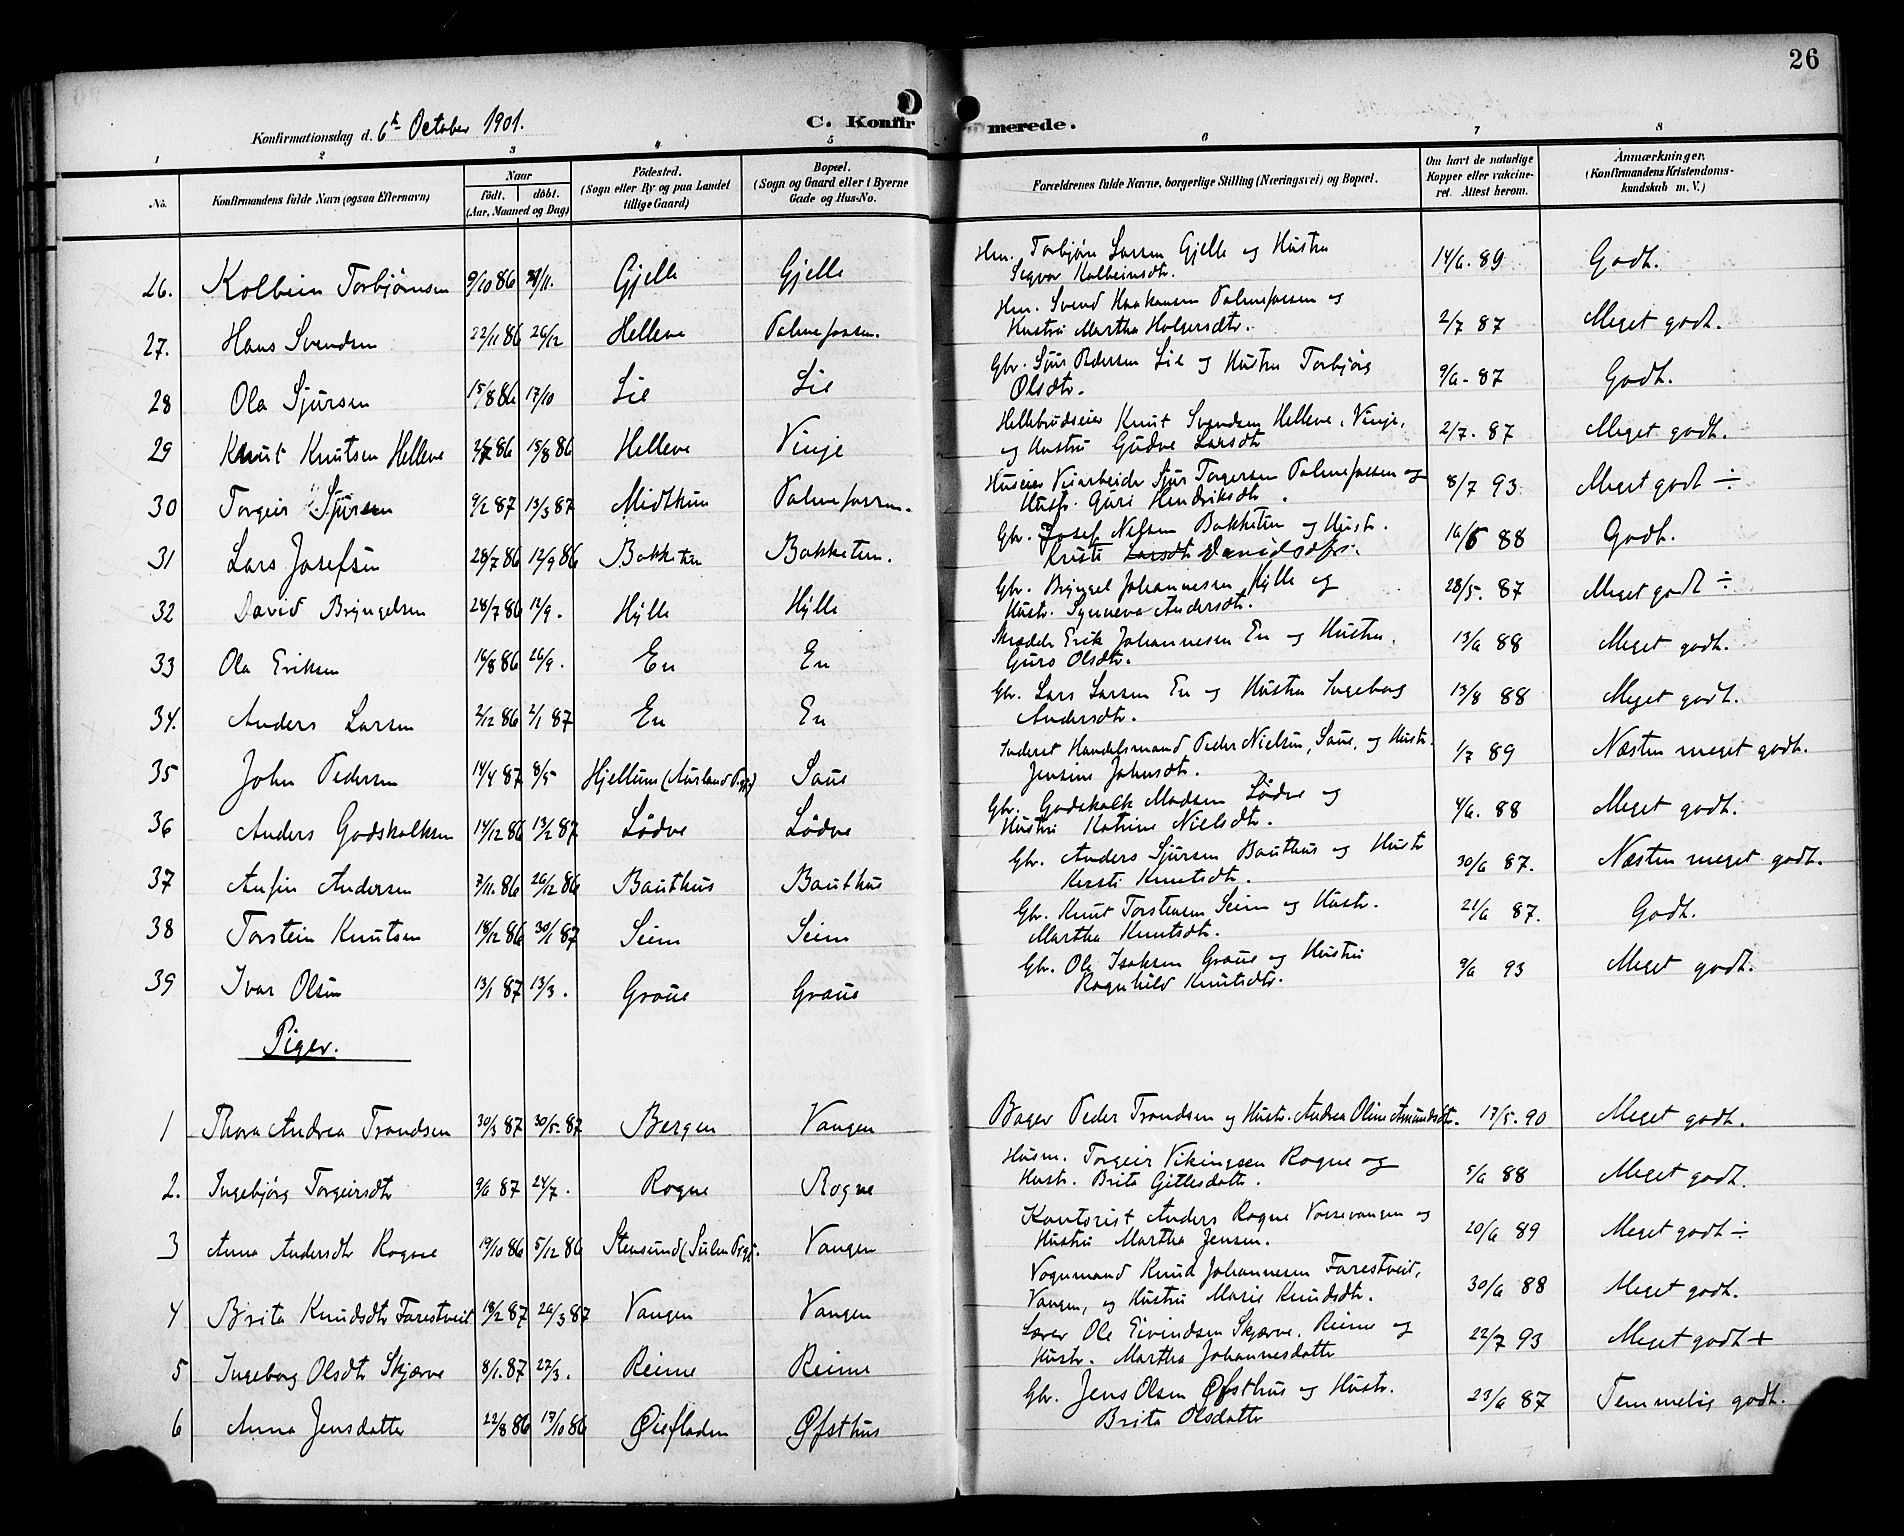 26
Konfirmationsdag d. 6te October 1901.
C. Konfirmerede.
1 2 3 4 5 6 7 8
No. Konfirmandens fulde Navn (ogsaa Efternavn) Naar Födt. döbt. (Aar, Maaned og Dag) Födested. (Sogn eller By og paa Landet tillige Gaard) Bopæl. (Sogn og Gaard eller i Byerne Gade og Hus-No. Forældrenes fulde Navne, borgerlige Stilling (Næringsvei) og Bopæl. Om havt de naturlige Kopper eller vakcineret. Attest herom. Anmærkninger. (Konfirmandens Kristendomskundskab m. V.)
26. Kolbein Torbjörnsen 9/10 86 /11. Gjelle Gjelle Torbjörn Larsen Gjelle og Hustru 14/6. 89 Godt.
Kolbeinsdtr.
27. Hans Svendsen 22/11 86 26/12 Helleve Palmefossen. Svend Haakonsen Palmefossen og 2/7 87 Meget godt.
Hustru Martha Holgersdtr.
28 Ola Sjursen 15/8 86 17/10 Lie Lie Gbr. Sjur Pedersen Lie og Hustru Torbjörg 9/6 - 87 Godt.
Olsdtr.
29 Knut Knutsen Helleve 86 15/8 86 Helleve Vinje Hellebrudseier Knut Svendsen Helleve, Vinje, 2/7. 87 Meget godt.
og Hustru Gudve Larsdtr
30 Torgeir Sjursen 9/2 87 13/3 87 Midtkun Palmefossen. Huseier Veiarbeider Sjur Torgersen Palmefossen og 8/7 93 Meget godt ÷
Hustr. Guri Hendriksdtr.
31 Lars Josefsen 28/7 86 12/9 86 Bakketun Bakketun. Gbr. Josef Nilsen Bakketun og Hustr. 16/6 88 Godt.
Kristi Larsdtr Davidsdtr.
32 David Bryngelsen 28/7 86 12/9. Hylle Hylle Gbr. Bryngel Johannessen Hylle og 28/5. 87 Meget godt ÷
Hustr. Synneva Andersdtr.
33 Ola Eriksen 16/8 86 26/9. En En Skræder Erik Johannesen En og Hustru 13/6 88 Meget godt.
Guro Olsdtr.
34. Anders Larsen 2/12 86 2/1 87 En En Gbr. Lars Larsen En og Hustru Ingeborg 13/8 88 Meget godt.
Andersdtr.
35 John Pedersen 14/4 87 8/5 Hjellum (Aurland Prgj.) Saue Handelsmand Peder Nielsen, Saue, og Hustr. 1/7 89 Næsten meget godt.
Jensine Johnsdtr.
36 Anders Godskalksen 14/12 86 13/2 87 Lödve Lödve Gbr. Godskalk Madsen Lödve og 4/6. 88 Meget godt.
Hustru Katrine Nielsdtr.
37 Anfin Andersen 7/11. 86 26/12 86 Bauthus Bauthus Gbr. Anders Sjursen Bauthus og Hustr 30/6 87. Næsten meget godt.
Kersti Knutsdtr.
38 Torstein Knutsen 18/12 86 30/1 87 Seim Seim Gbr. Knut Torstensen Seim og Hustr. 21/6 87. Godt.
Martha Knutsdtr.
39 Ivar Olsen 13/1 87 13/3. Graue Graue Gbr. Ole Isaksen Graue og Hustru 9/6 93 Meget godt.
Ragnhild Knutsdtr.
Piger.
1 Thora Andrea Trondsen 30/3 87 30/5. 87 Bergen Vangen Bager Peder Trondsen og Hustr. Andrea Oline Amundsdtr. 17/5. 90 Meget godt.
2. Ingebjörg Torgeirsdtr 9/6 87 24/7. Rogne Rogne Husm. Torgeir Vikingsen Rogne og 5/6 88 Meget godt.
Hustr. Brita Gitlesdatter.
3 Anna Andersdtr Rogne 19/10 86 5/12 86 Stensund (Sulen Prgj. Vangen Kontorist Anders Rogne Vossevangen og 20/6 89 Meget godt ÷
Hustru Martha Jensen.
4 Brita Knudsdtr Farestveit 18/2 87 26/3 87 Vangen Vangen Vognmand Knud Johannesen Farestveit, 30/6 88 Meget godt.
Vangen, og Hustru Maris Knudsdtr.
5 Ingeborg Olsdtr Skjærve 8/1. 87 27/3. Reime Reime Lærer Ole Eivindsen Skjærve, Reime og 22/7 93 Meget godt +
Hustr. Martha Johannesdatter
6 Anna Jensdatter 22/8 86 17/10 86 Øiefladen Øfsthus Gbr. Jens Olsen Øfsthus og Hustr. 23/6 87 Temmelig godt.
Brita Olsdatter